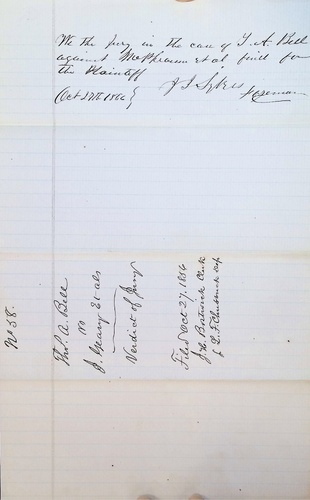 We the Jury in the case of T. A. Bell
against et al find for
the Plaintiff
J S Sykes
Foreman
Oct 27th
No 58.
Thos. A. Bell
vs
J. Geary Et als
Verdict of Jury
Filed Oct 27. 1856
J. L. Bostwick Clerk